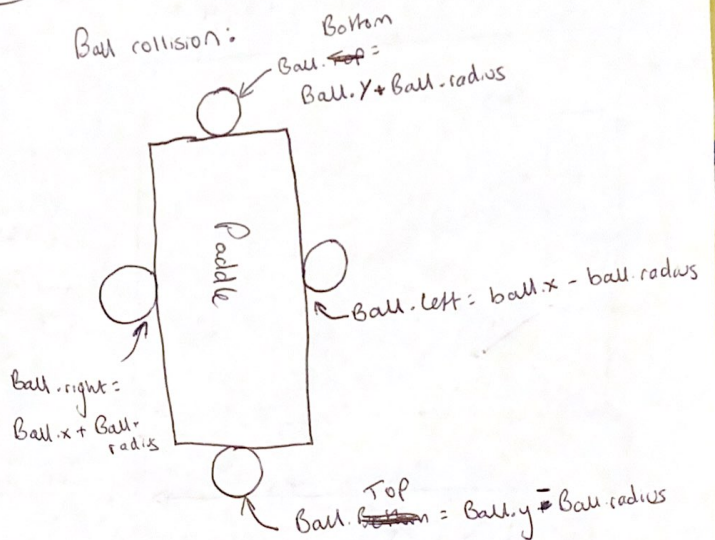 Ball collision:
Bottom
Ball.Top =
Ball.Y + Ball.radius
Paddle
Ball.left = ball.x - ball.radius
Ball.right =
Ball.x + Ball.
radius
Top
Ball.Bottom = Ball.y - Ball.radius